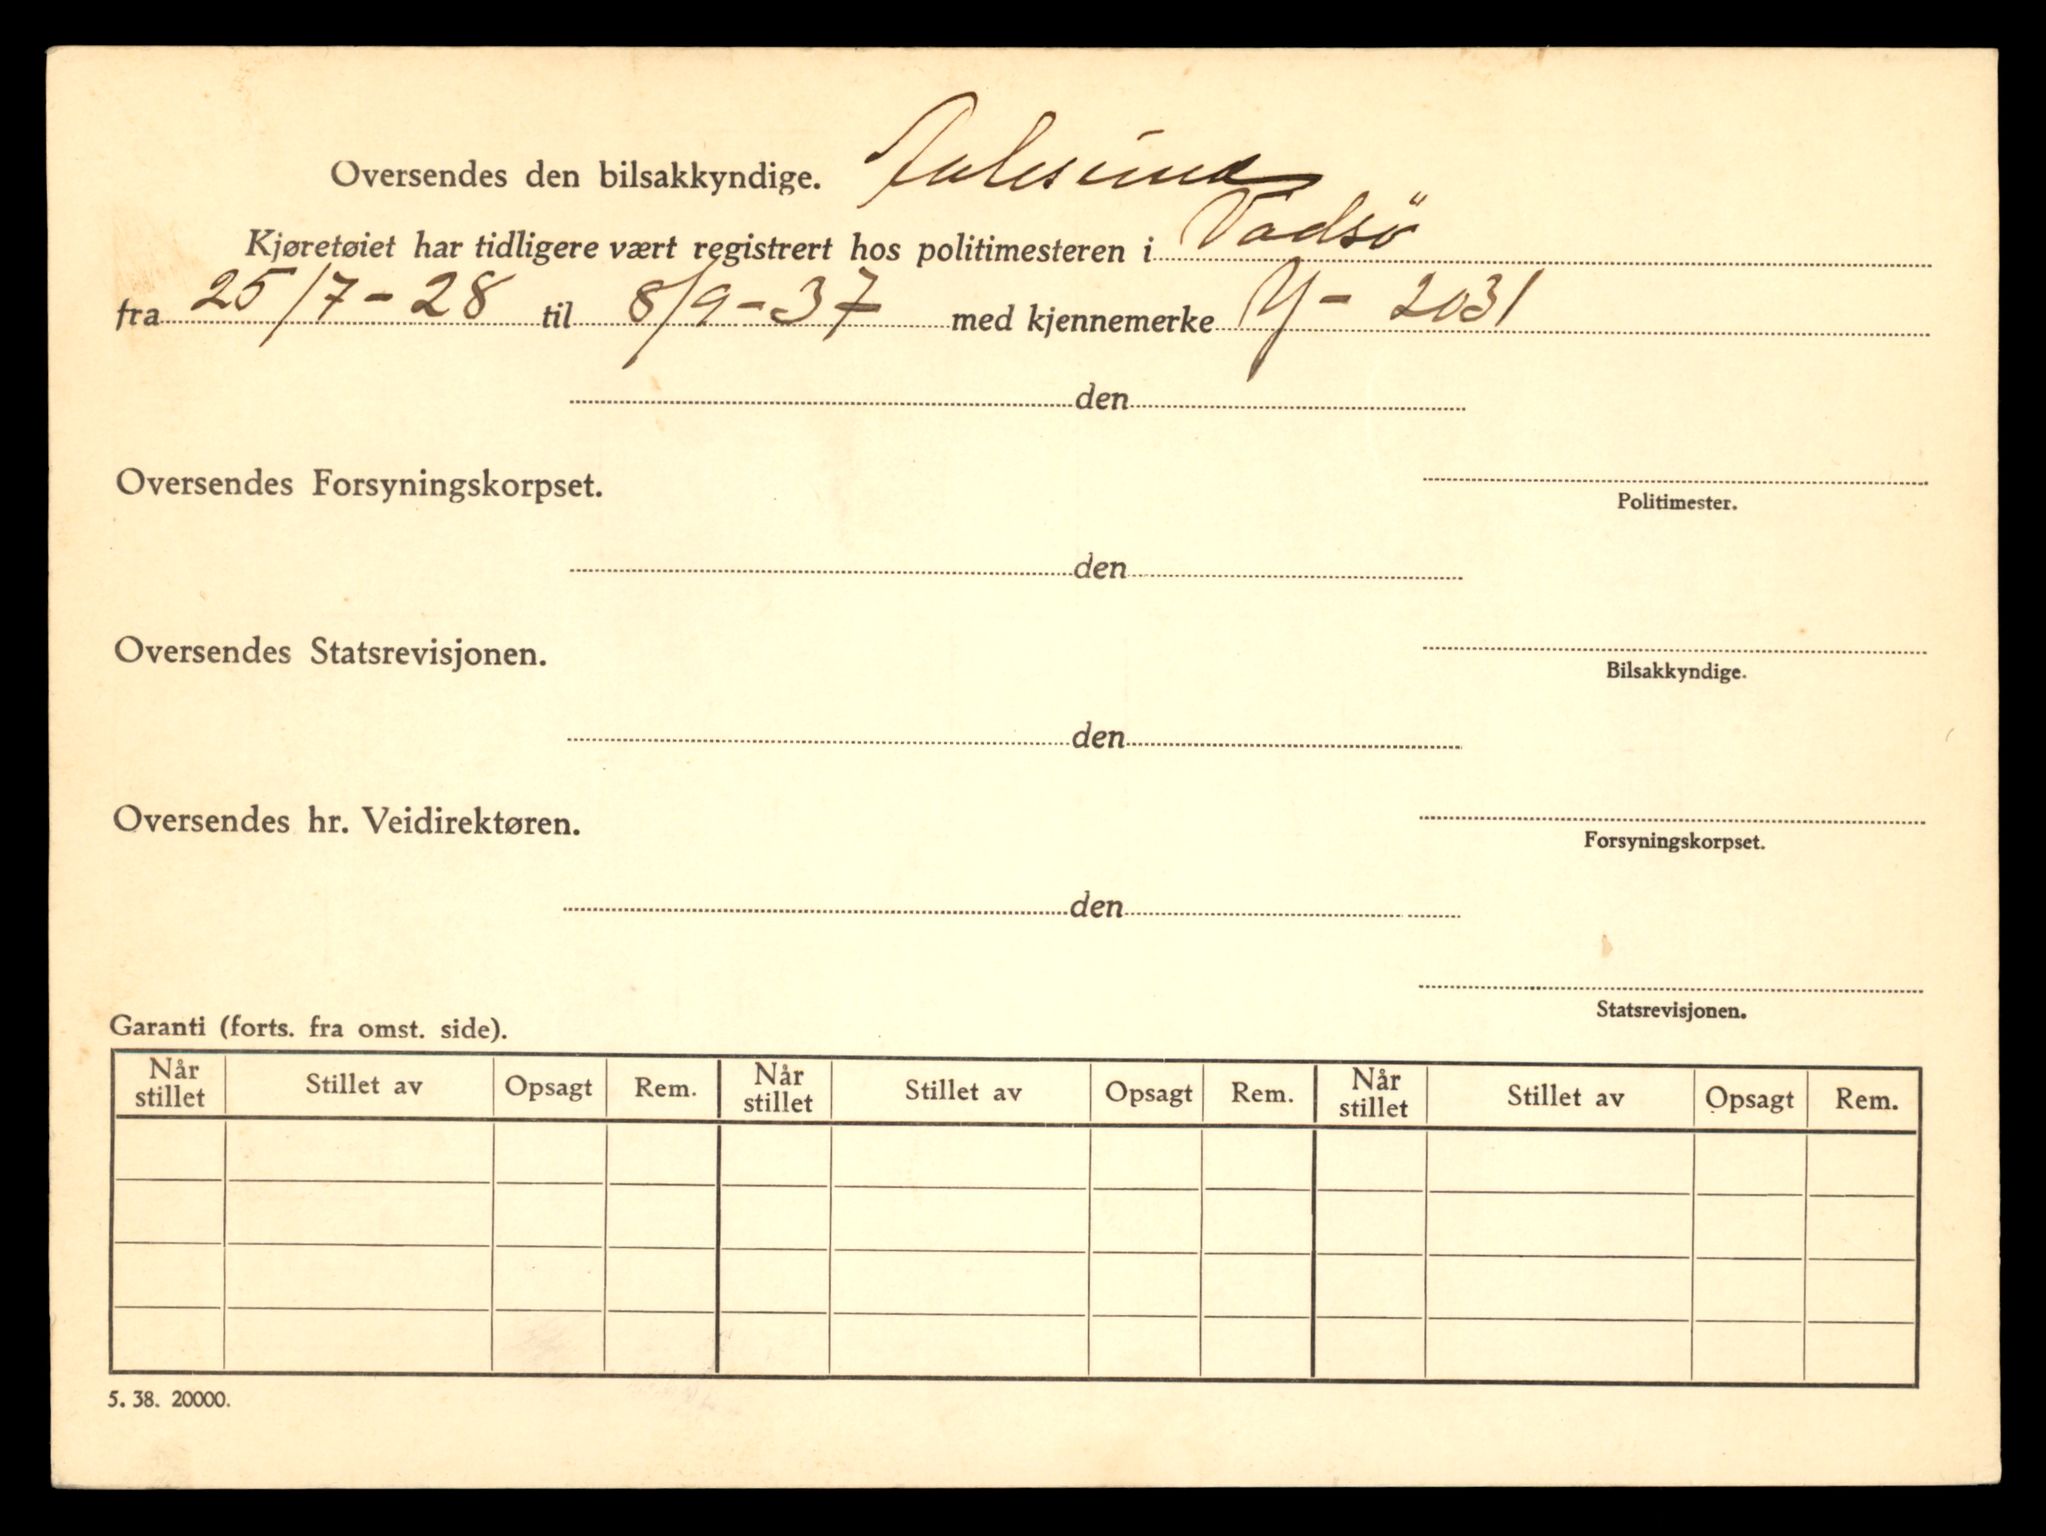 Oversendes den bilsakkyndige. Aalesund
Kjøretøiet har tidligere vært registrert hos politimesteren i Vadsö
fra 25/7-28 til 8/9-37 med kjennemerke Y-2031
den
Oversendes Forsyningskorpset.
Politimester.
den
Oversendes Statsrevisjonen.
Bilsakkyndige.
den
Oversendes hr. Veidirektøren.
Forsyningskorpset.
den
Statsrevisjonen.
Garanti (forts. fra omst. side).
Når stillet Stillet av Opsagt Rem. Når stillet Stillet av Opsagt Rem. Når stillet Stillet av Opsagt Rem.
5. 38. 20000.